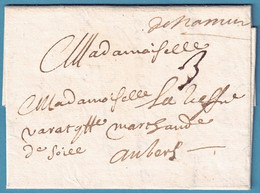 de Namur
Mademoiselle
3
Mademoiselle La vefve
marchande
de soiee
anvers